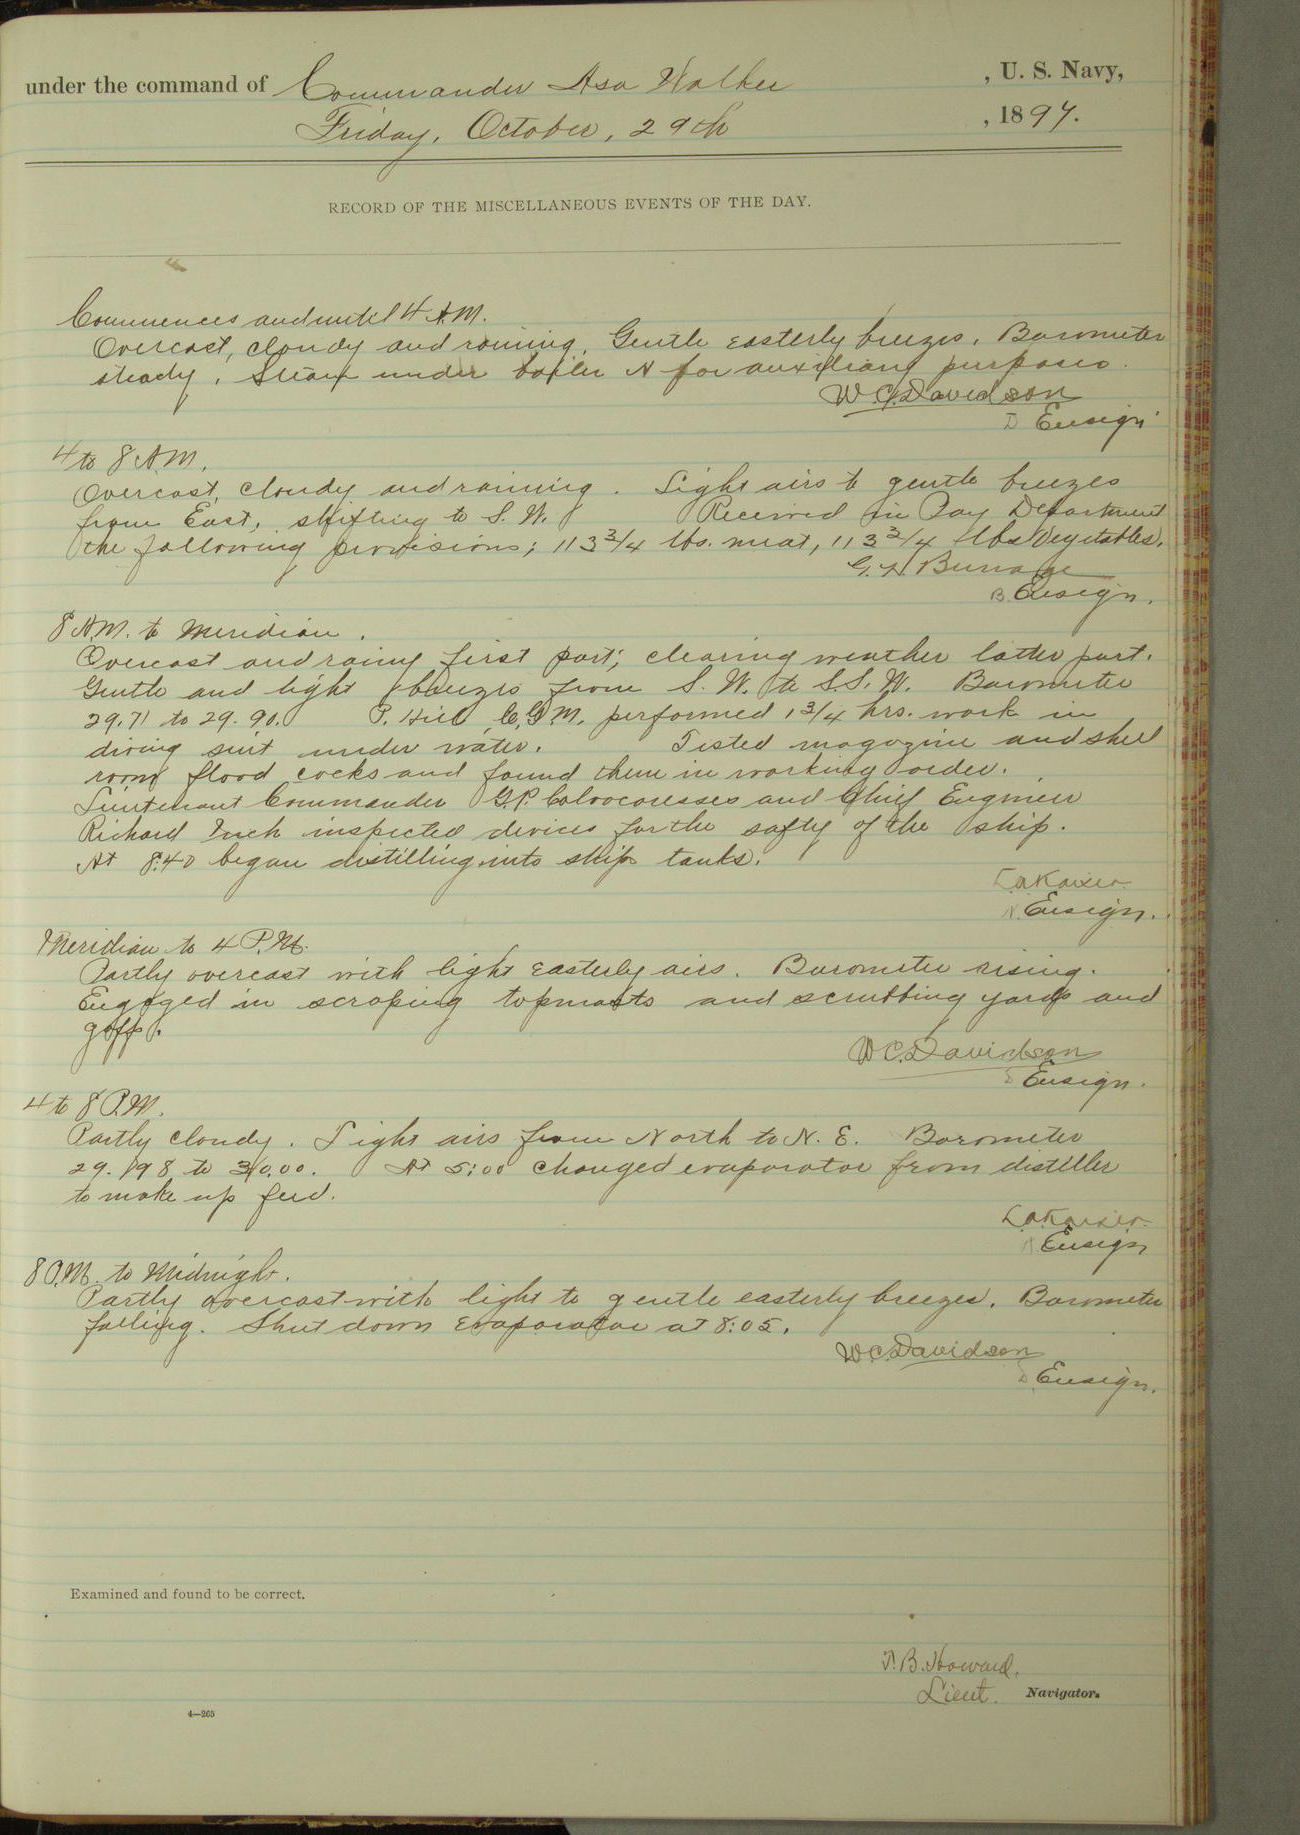 under the command of Commander Asa Walker , U. S. Navy,
Friday, October, 29th , 1897.
RECORD OF THE MISCELLANEOUS EVENTS OF THE DAY.
Commences and until 4 A.M.
Overcast, cloudy and raining. Gentle easterly breezes. Barometer
steady. Steam under boiler N for auxiliary purposes.
W. C. Davidson
D Ensign
4 to 8 A.M.
Overcast, cloudy and raining. Light airs to gentle breezes
from East, shifting to S. W. Received in Pay Department
the following provisions; 113 3/4 lbs. meat, 113 3/4 lbs vegetables.
G. H. Burrage
B. Ensign.
8 A.M. to Meridian.
Overcast and rainy first part; clearing weather latter part.
Gentle and light breezes from S. W. to S.S.W. Barometer
29.71 to 29.90. P. Hill, C.G.M. performed 1 3/4 hrs. work in
diving suit under water. Tested magazine and shell
room flood cocks and found them in working order.
Lieutenant Commander G.P. Colvocoresses and Chief Engineer
Richard Inch inspected devices for the safty of the ship.
At 8:40 began distilling into ship tanks.
L.A. Kaiser
K. Ensign.
Meridian to 4 P.M.
Partly overcast with light easterly airs. Barometer rising.
Engaged in scraping topmasts and scrubbing yards and
gaff.
W C. Davidson
D Ensign.
4 to 8 P.M.
Partly cloudy. Light airs from North to N. E. Barometer
29.98 to 30.00. At 5:00 changed evaporator from distiller
to make up feed.
L.A. Kaiser
K Ensign
8 P.M. to Midnight.
Partly overcast with light to gentle easterly breezes. Barometer
falling. Shut down Evaporator at 8:05.
W. C. Davidson
D. Ensign.
Examined and found to be correct.
T. B. Howard.
Lieut. Navigator.
4—265